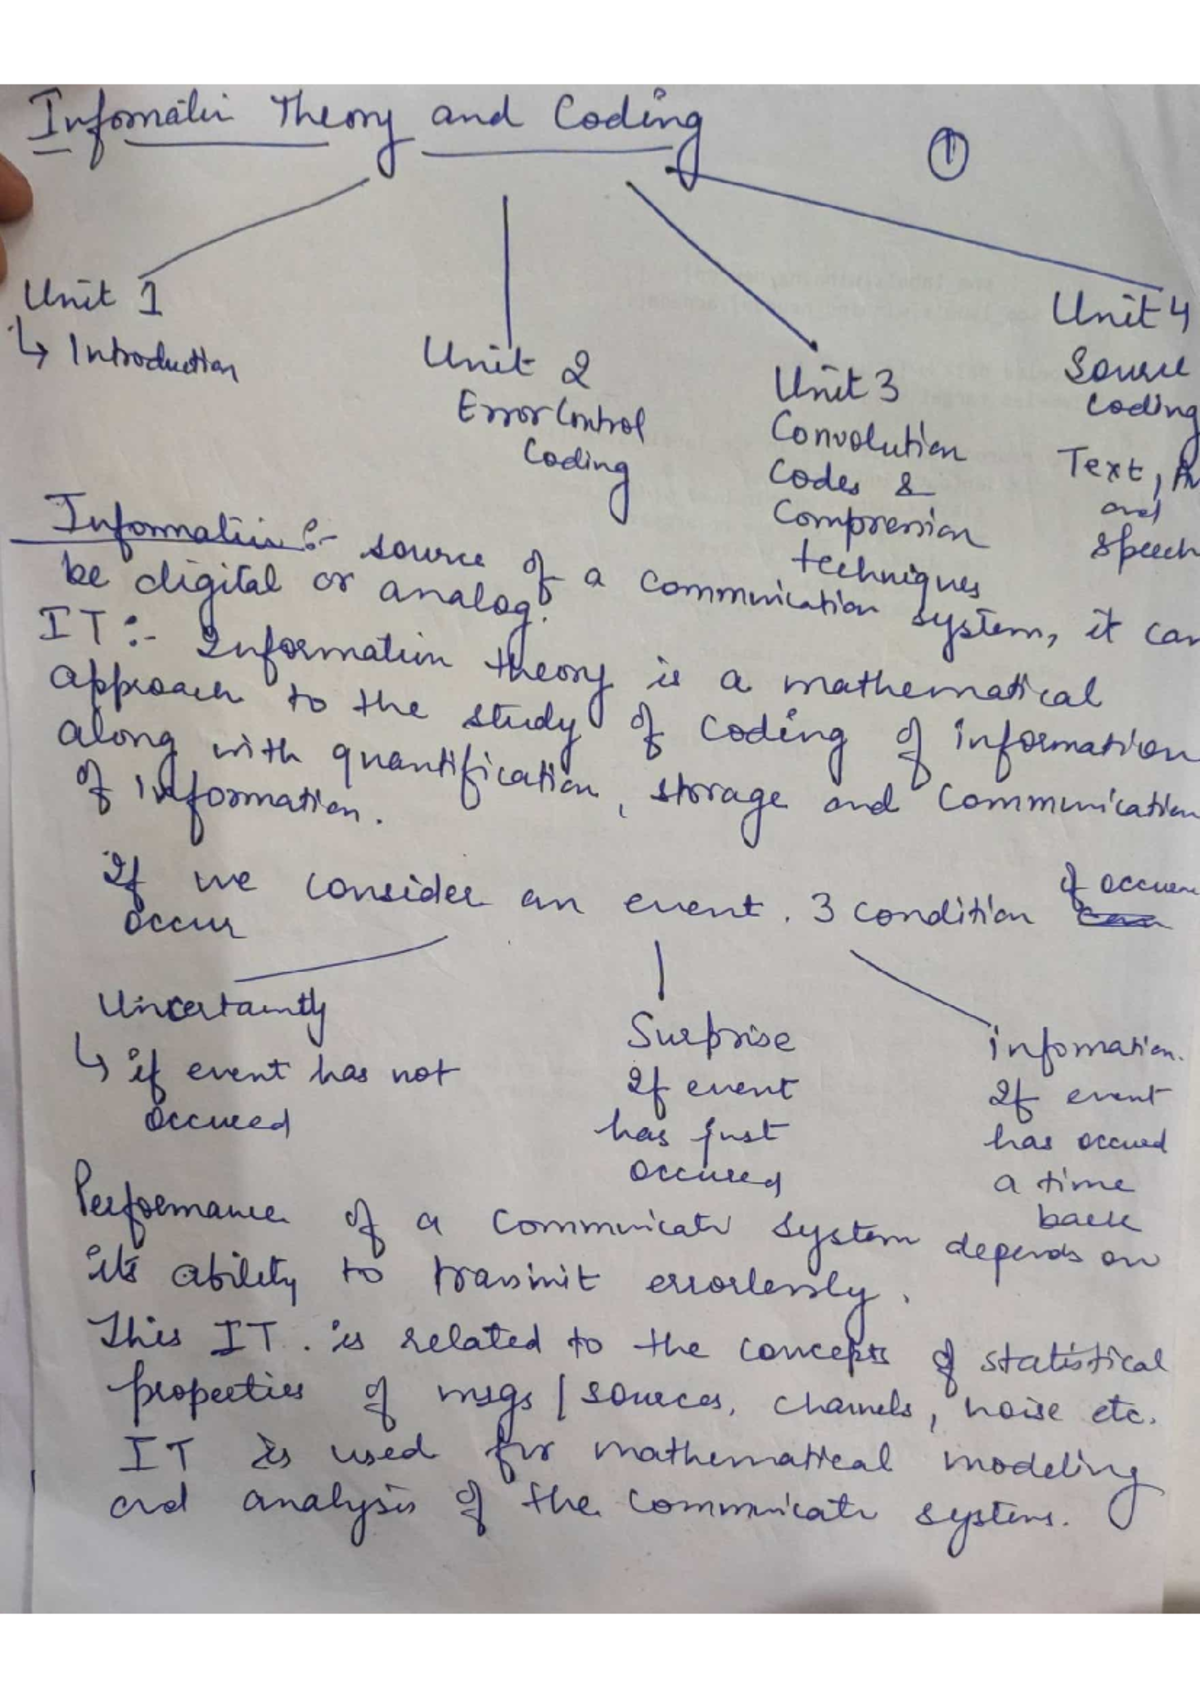 Infomatin Theory and Coding
1
Unit 1
↳ Introduction
Unit 2
Error Control
Coding
Unit 3
Convolution
Codes &
Compression
techniques
Unit 4
Source
Coding
Text,
and
speech
Information :- source of a communication system, it can
be digital or analog.
IT :- Information theory is a mathematical
approach to the study of coding of information
along with quantification, storage and communication
of information.
If we consider an event. 3 condition of occuren
occur
Uncertaintly
↳ if event has not
occured
Surprise
If event
has just
occured
infomation.
If event
has occured
a time
back
Performance of a communicatn system depends on
its ability to transmit errorlessly.
This IT. is related to the concepts of statistical
properties of msgs / sources, channels, noise etc.
IT is used for mathematical modeling
and analysis of the communicatn systems.